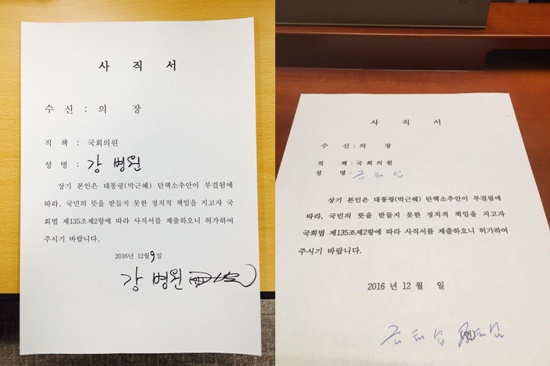 사 직 서
수 신 : 의 장
직 책 : 국회의원
성 명 : 강 병원
상기 본인은 대통령(박근혜) 탄핵소추안이 부결됨에
따라, 국민의 뜻을 받들지 못한 정치적 책임을 지고자 국
회법 제135조제2항에 따라 사직서를 제출하오니 허가하여
주시기 바랍니다.
2016년 12월 9일
강 병원
사 직 서
수 신 : 의 장
직 책 : 국회의원
성 명 :
상기 본인은 대통령(박근혜) 탄핵소추안이 부결됨에
따라, 국민의 뜻을 받들지 못한 정치적 책임을 지고자
국회법 제135조제2항에 따라 사직서를 제출하오니 허가하여
주시기 바랍니다.
2016 년 12 월 일